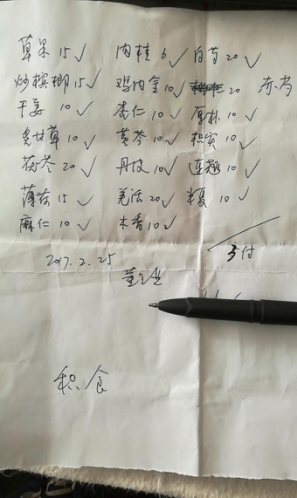 草果15✓ 肉桂6✓ 白芍20✓
炒槟榔15✓ 鸡内金10✓ 20 赤芍
干姜10✓ 杏仁10✓ 厚朴10✓
炙甘草10✓ 黄芩10✓ 枳实10✓
茯苓20✓ 丹皮10✓ 连翘10✓
薄荷15✓ 羌活20✓ 半夏10✓
麻仁10✓ 木香10✓
3付
2017.2.25
积食